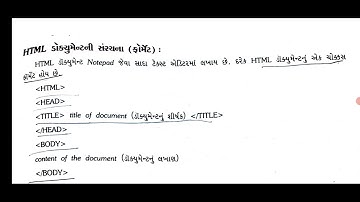 HTML ડોક્યુમેન્ટની સંરચના (ફોર્મેટ) :
HTML ડોક્યુમેન્ટ Notepad જેવા સાદા ટેક્સ્ટ એડિટરમાં લખાય છે. દરેક HTML ડોક્યુમેન્ટનું એક ચોક્કસ
ફોર્મેટ હોય છે.
<HTML>
<HEAD>
<TITLE> title of document (ડોક્યુમેન્ટનું શીર્ષક) </TITLE>
</HEAD>
<BODY>
content of the document (ડોક્યુમેન્ટનું લખાણ)
</BODY>